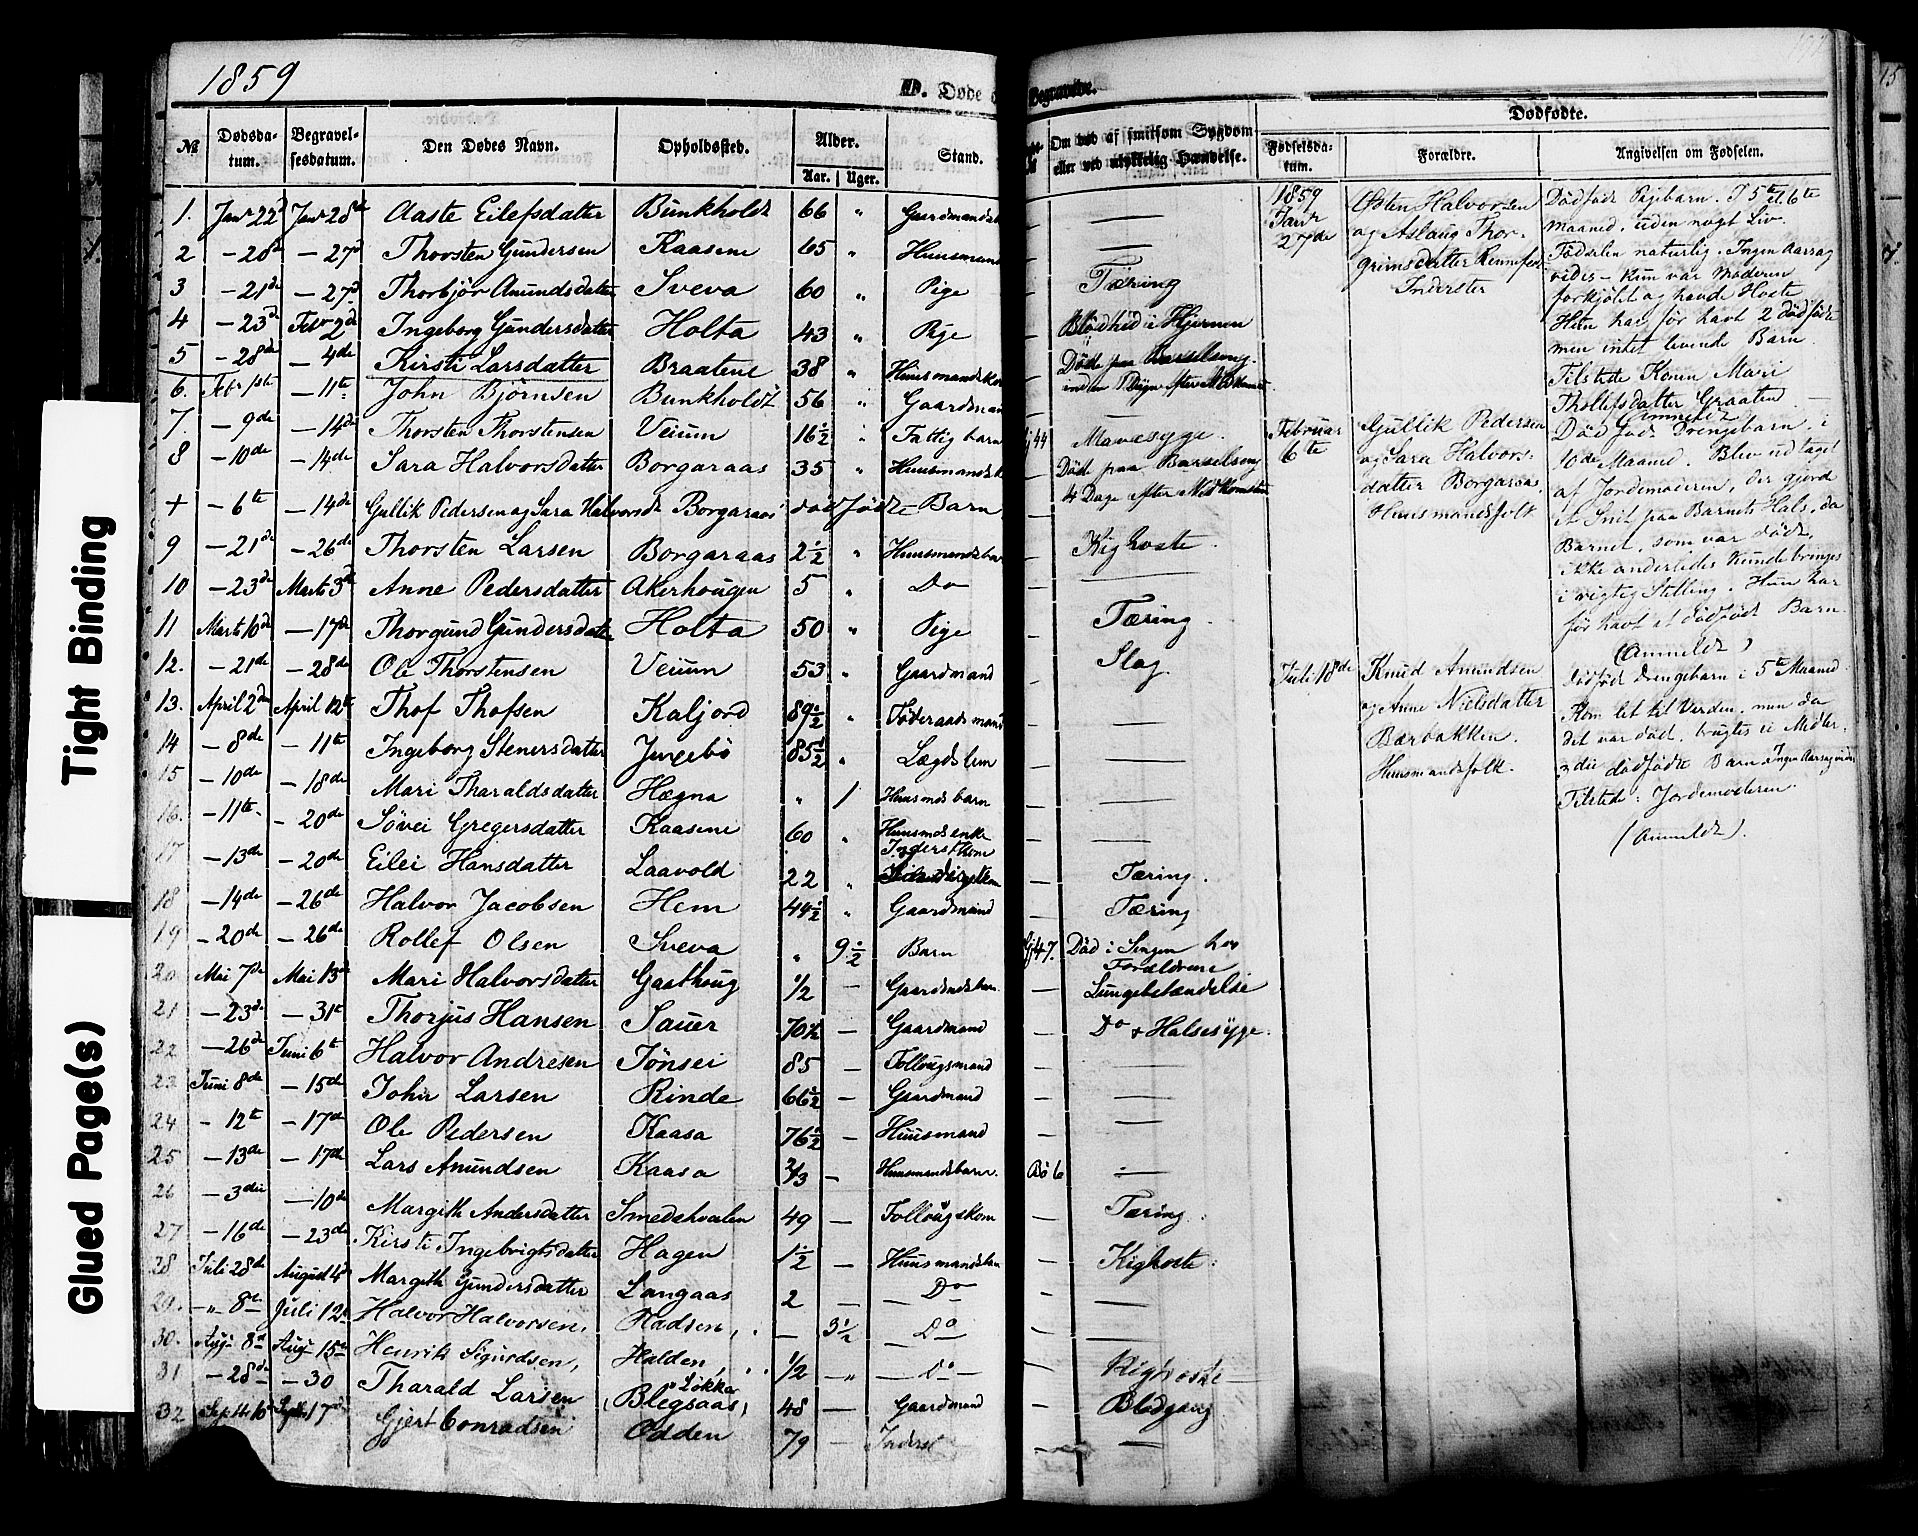 1859
D. Døde
Begravede.
Tight Binding
Glued Page(s)
№
Dødsda-
tum.
Begravel-
sesdatum.
Den Dødes Navn.
Opholdssted.
Alder.
Aar. Uger.
Stand.
Om død af smitsom Sygdom
eller ved ulykkelig Hændelse.
Dødfødte.
Fødselsda-
tum.
Forældre.
Angivelsen om Fødselen.
1. Janr 22d Janr 28de Aaste Eilefsdatter Bunkholdt 66 " Gaardmands —
2 — 28de — 27d Thorsten Gundersen Kaasene 65 " Huusmand —
3 — 21de — 27de Thorbjør Amundsdatter Sveva 60 " Pige — Tæring
4 — 23de Febr 2de Ingeborg Gundersdatter Holta 43 " Pige — Blødhed i Hjernen
5 — 28de — 4de Kirsti Larsdatter Braatene 38 " Huusmandsko — Døde paa Barselseng
inden 1 Døgn efter Nedkomst
6. Febr 1ste — 11te John Bjørnsen Bunkholdt 56 " Gaardman —
7. — 9de — 14de Thorsten Thorstensen Veium 16½ " Fattig barn Gj 44 Mavesyge.
8 — 10de — 14de Sara Halvorsdatter Borgaraas 35 " Huusmandsk — Død paa Barselseng
4 Dage efter Nedkomsten
+ — 6te — 14de Gullik Pedersen og Sara Halvorsdr Borgaraas dødfødte Barn
9 — 21de — 26de Thorsten Larsen Borgaraas 2½ " Huusmandsbar — Kighoste.
10 — 23de Marts 3de Anne Pedersdatter Akerhougen 5 " Do —
11 Marts 10de — 17de Thorgund Gundersdatter Holta 50 " Pige — Tæring.
12. — 21de — 28de Ole Thorstensen Veium 53 " Gaardmand — Slag.
13. April 2de April 12te Thof Thofsen Kaljord 89½ " Føderaadsmand —
14 — 8de — 11te Ingeborg Stenersdatter Jureibö 85½ " Lægdslem —
15 — 10de — 18de Mari Tharaldsdatter Hægna " 1 Huusmds barn —
16. — 11te — 20de Søvei Gregersdatter Kaasene 60 " Huusmds enke —
17 — 13de — 20de Eilei Hansdatter Laavold 22 " Inderst kone — Tæring.
18 — 14de — 26de Halvor Jacobsen Hem 44½ " Gaardmand — Tæring
19 — 20de — 26de Rollef Olsen Sveva " 9½ Barn Gj 47. Død i Sengen hos
Forældrene
20 Mai 7de Mai 13de Mari Halvorsdatter Gaathoug ½ — Gaardmdsbarn — Lungebetændelse
21 — 23de — 31te Thorjus Hansen Sauer 70½ — Gaardmand — Do & Halsesyge.
22 — 26de Juni 6te Halvor Andresen Tønsei 85 — Follougsmand —
23 Juni 8de — 15de John Larsen Rinde 66½ — Gaardmand —
24 — 12te — 17de Ole Pedersen Kaasa 76½ — Huusmand —
25 — 13de — 17de Lars Amundsen Kaasa ⅔ — Huusmandsbarn. Bö 6
26 — 3die — 10de Margith Andersdatter Smedehvalen 49 — Follougskone — Tæring.
27 — 16de — 23de Kirsti Ingebrigtsdatter Hagen 1½ — Huusmandsbarn — Kighoste.
28 Juli 28de August 4de Margith Gundersdatter Langaas 2 — Do —
29. — " 8de Juli 12te Halvor Halvorsen, Hadsen, — 3½ Do —
30. Aug. 8de Aug 15de Henrik Sigurdsen, Halden, ½ — Do — Kighoste
31 — 28de — 30 Tharald Larsen Løkka
(Blegsaas) 48 — Gaardmand — Blodgang
32 Septbr 10de Septbr 17de Gjert Conradsen Odden 79 — Inderst —
1859
Janr
27de
Østen Halvorsen
og Aslaug Thor-
grimsdatter
Inderster
Dødfødt Pigebarn. I 5te el. 6te
Maaned, uden nogt Liv.
Fødselen naturlig. Ingen Aarsag
vides — kun var Moderen
forkjølet og havde Hoste
Hun har før havt 2 dødfødte
men intet levende Barn.
Tilstede Konen Mari
Thollefsdatter Graaten
Anmeldt
Februar
6te
Gullik Pedersen
og Sara Halvors-
datter Borgaraas,
Huusmandsfolk
Dødfødt Drengebarn, i
10de Maaned. Blev udtaget
af Jordemoderen, der gjorde
et Snit paa Barnets Hals, da
Barnet, som var dødt,
ikke anderledes kunde bringes
i rigtig Stilling. Hun har
før havt et dødfødt Barn.
(Anmeldt)
Juli 18de
Knud Amundsen
og Anne Nielsdatter
Bærbakken.
Huusmandsfolk.
Dødfødt Drengebarn i 5te Maaned.
Kom let til Verden, men da
det var død, brugtes ei Midler.
3die dødfødte Barn. Ingen Aarsag vides
Tilstede: Jordemoderen.
(Anmeldt).